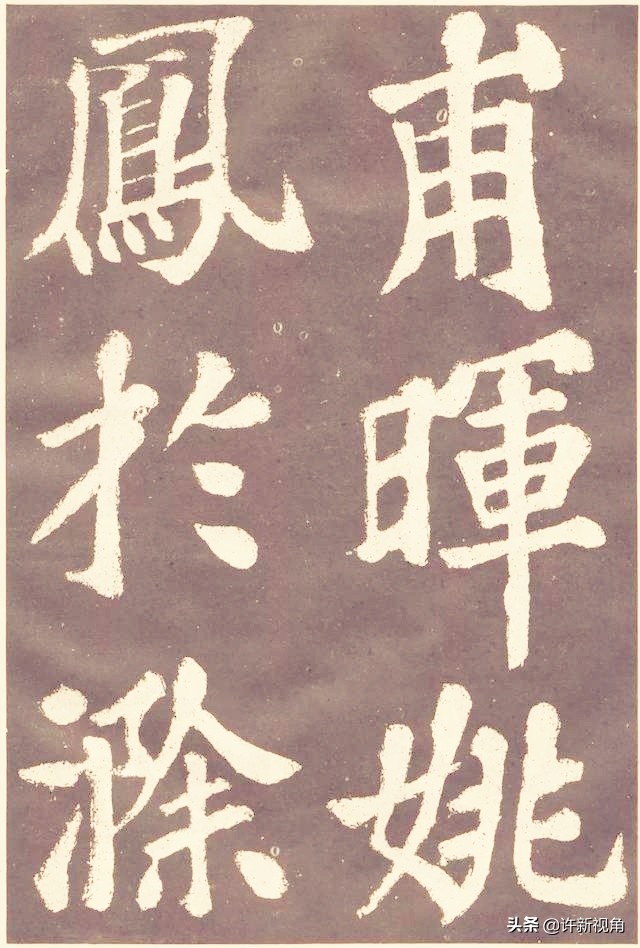 甫暉姚
鳳於滁
头条 @许新视角